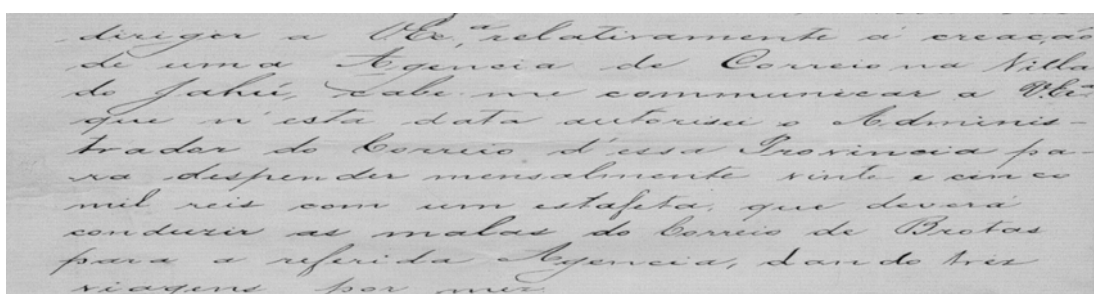 dirigir a V.Ex.ª, relativamente á creação
de uma Agencia de Correio na Villa
do Jahú, cabe me communicar a V.Ex.ª
que n'esta data autorisei o Adminis-
trador do Correio d'essa Provincia pa-
ra despender mensalmente vinte e cinco
mil reis com um estafeta, que deverá
conduzir as malas do Correio de Brotas
para a referida Agencia, dando trez
viagens por mez